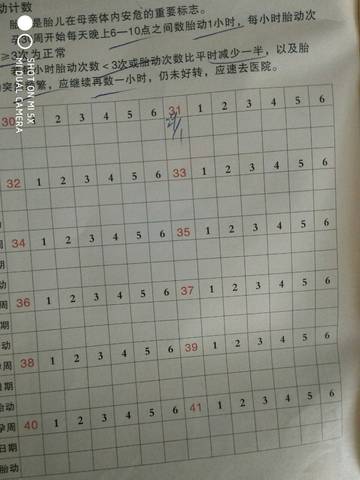 动计数
胎动是胎儿在母亲体内安危的重要标志。
周开始每天晚上6—10点之间数胎动1小时，每小时胎动次
≥3次为正常
若每小时胎动次数＜3次或胎动次数比平时减少一半，以及胎
动突，应继续再数一小时，仍未好转，应速去医院。
SHOT ON MI 5X
DUAL CAMERA
30 2 3 4 5 6 31 1 2 3 4 5 6
32 1 2 3 4 5 6 33 1 2 3 4 5 6
动
周 34 1 2 3 4 5 6 35 1 2 3 4 5 6
期
动
周 36 1 2 3 4 5 6 37 1 2 3 4 5 6
日期
动
孕周 38 1 2 3 4 5 6 39 1 2 3 4 5 6
日期
胎动
孕周 40 1 2 3 4 5 6 41 1 2 3 4 5 6
日期
胎动